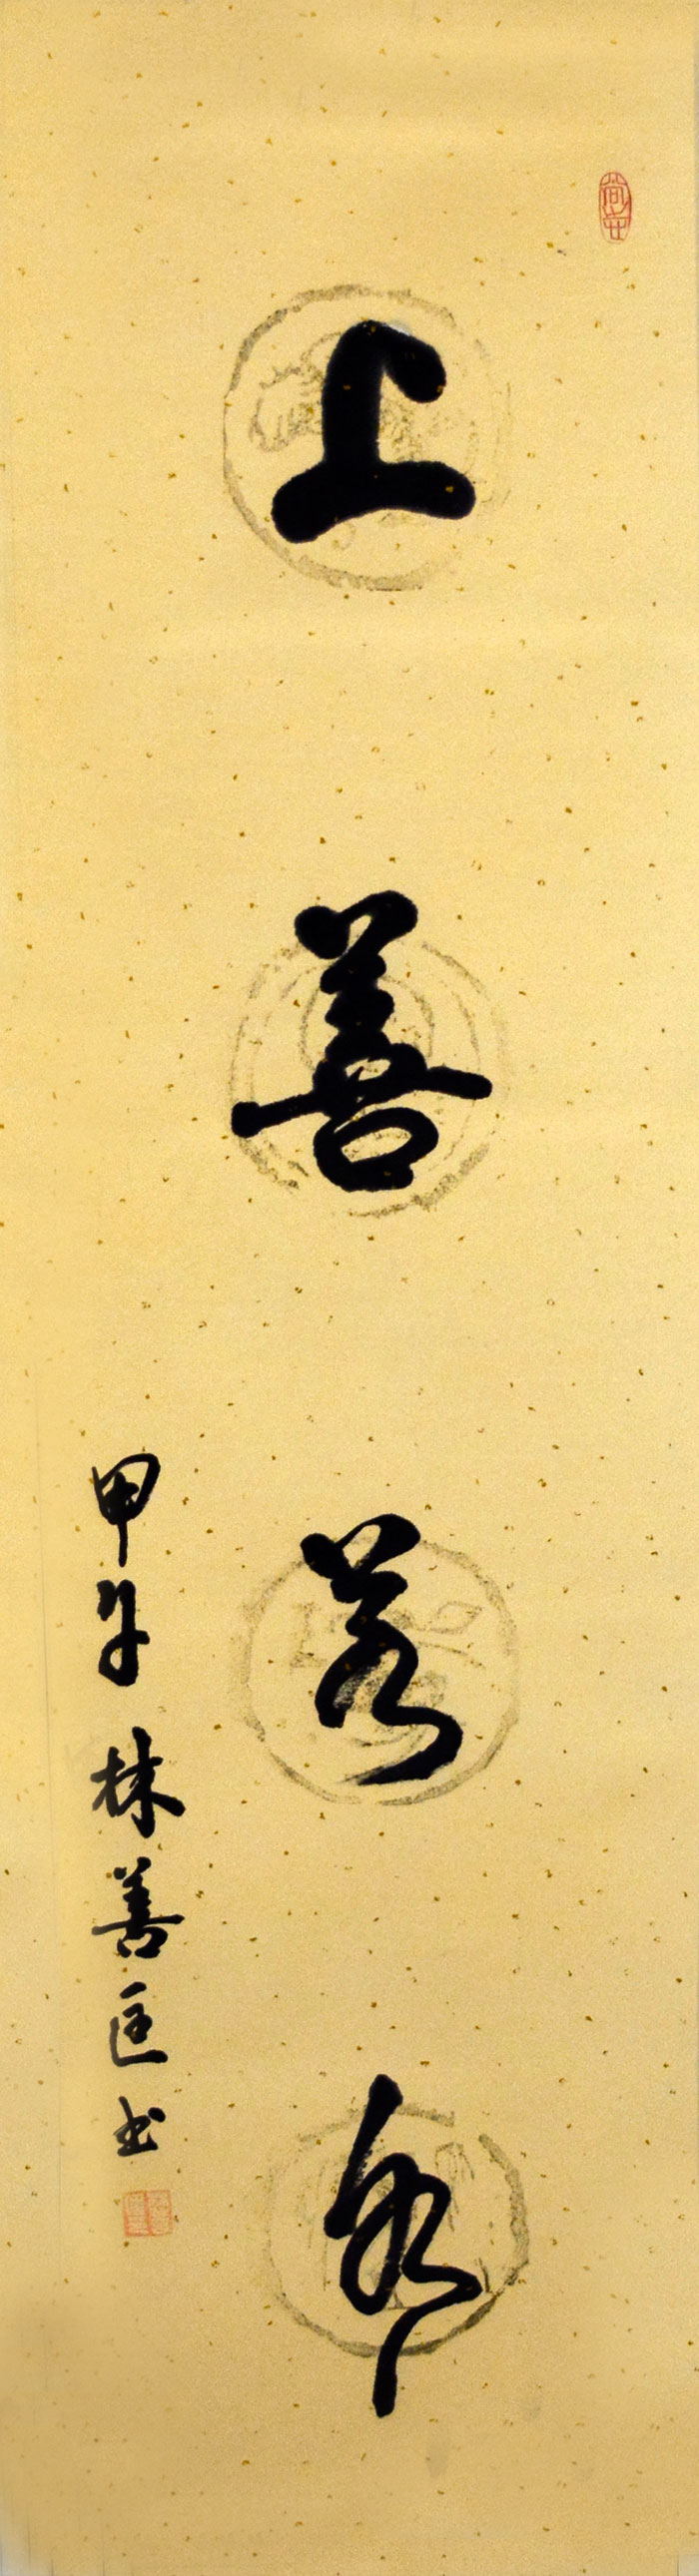 上善若水
甲午 林善匡书